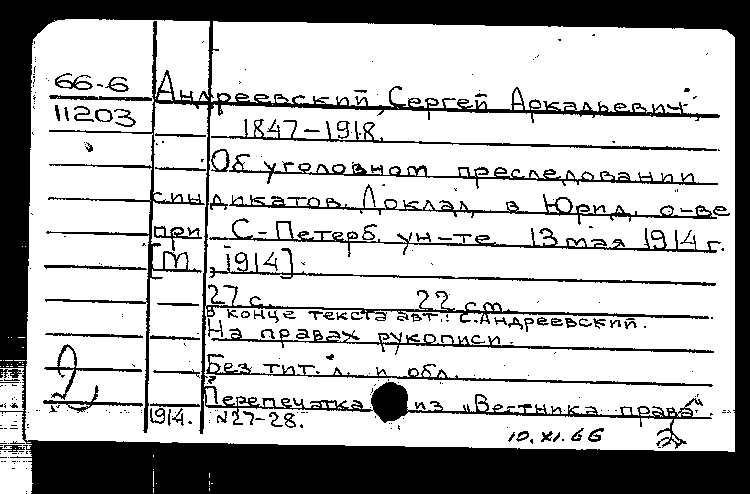 66-6 Андреевский, Сергей Аркадьевич,
11203 1847-1918.
Об уголовном преследовании
синдикатов. Доклад в Юрид. о-ве
при С-Петерб. ун-те 13 мая 1914 г.
[М., 1914].
27 с. 22 см.
В конце текста авт.: С.Андреевский.
На правах рукописи.
Без тит. л. и обл.
Перепечатка из „Вестника права"
1914. N27-28.
10.XI.66
2